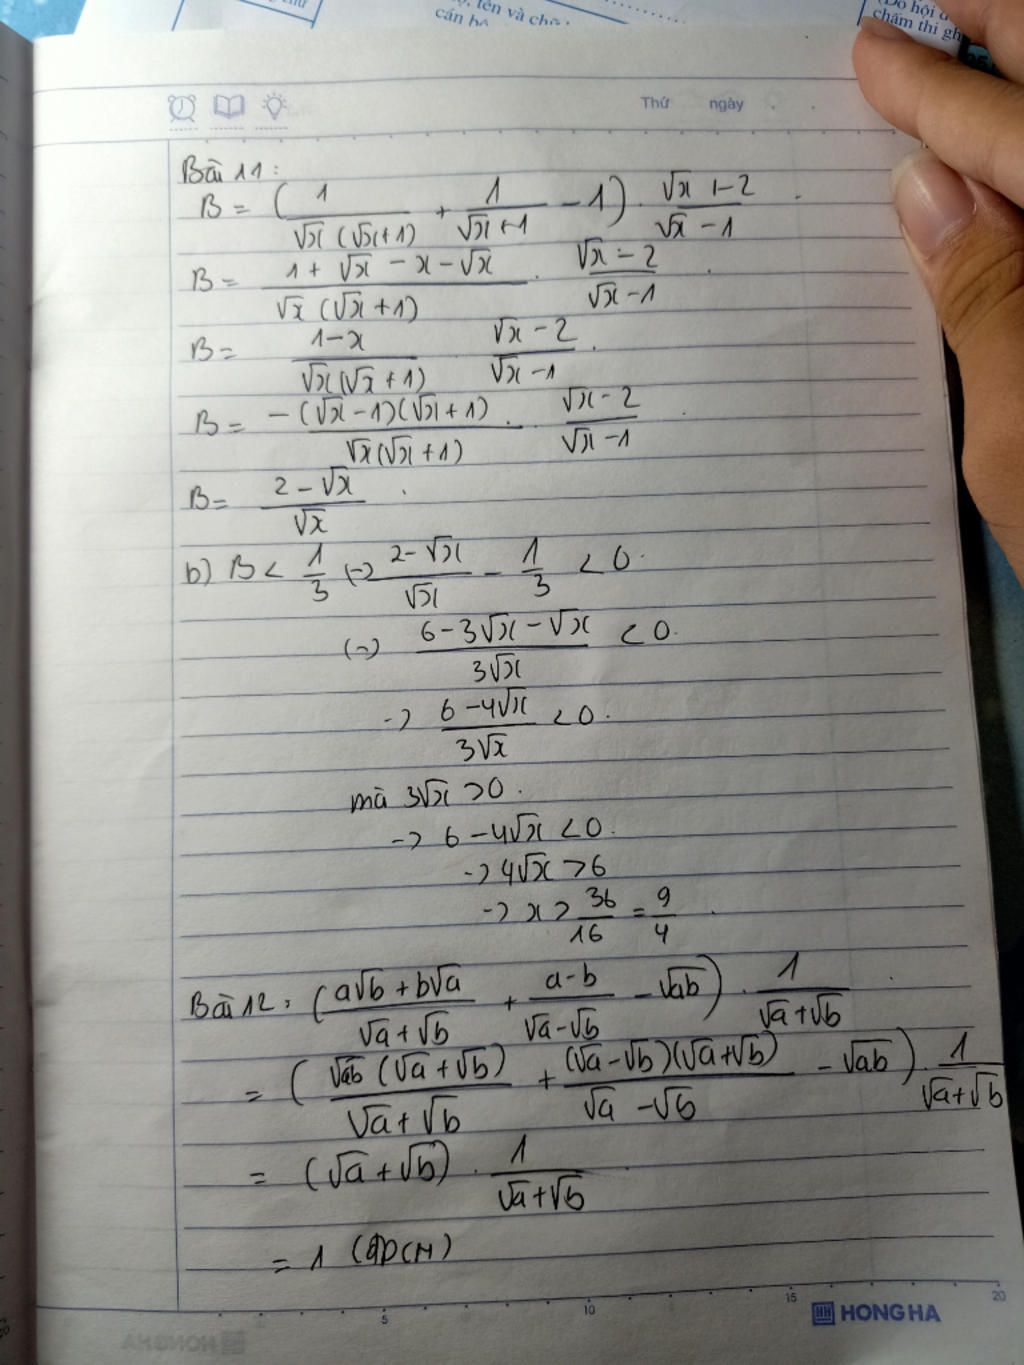 , tên và chữ
cán bộ
chấm thi gh
Thứ ngày
Bài 11:
B = (1/(√x(√x+1)) + 1/(√x+1) − 1) · (√x − 2)/(√x − 1)
B = (1 + √x − x − √x)/(√x(√x+1)) · (√x − 2)/(√x − 1)
B = (1 − x)/(√x(√x+1)) (√x − 2)/(√x − 1)
B = −(√x − 1)(√x + 1)/(√x(√x+1)) · (√x − 2)/(√x − 1)
B = (2 − √x)/√x
b) B < 1/3 (→) (2 − √x)/√x − 1/3 < 0
(→) (6 − 3√x − √x)/(3√x) < 0
→ (6 − 4√x)/(3√x) < 0
mà 3√x > 0
→ 6 − 4√x < 0
→ 4√x > 6
→ x > 36/16 = 9/4
Bài 12: ((a√b + b√a)/(√a + √b) + (a − b)/(√a − √b) − √ab) · 1/(√a + √b)
= (√ab(√a + √b)/(√a + √b) + (√a − √b)(√a + √b)/(√a − √b) − √ab) · 1/(√a + √b)
= (√a + √b) · 1/(√a + √b)
= 1 (ĐPCM)
5 10 15 20
HONG HA